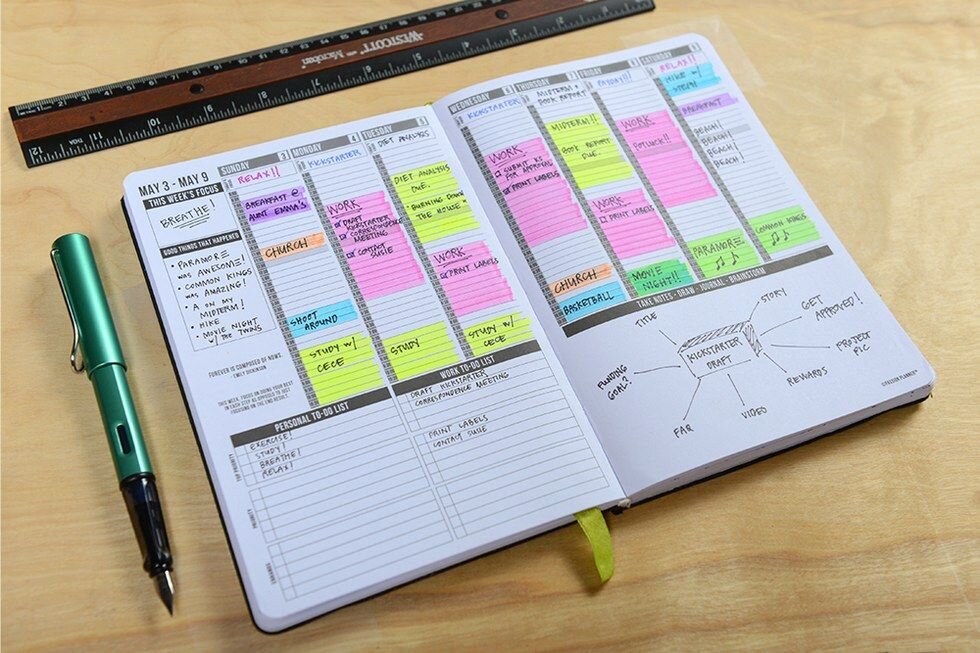 WESTCOTT with Microban
12 11 10 9 8 7 6 5 4 3 2
MAY 3 - MAY 9
THIS WEEK'S FOCUS
BREATHE!
GOOD THINGS THAT HAPPENED
• PARAMORE
WAS AWESOME!
• COMMON KINGS
WAS AMAZING!
• A ON MY
MIDTERM!
• HIKE
• MOVIE NIGHT
W/ THE TWINS
FOREVER IS COMPOSED OF NOWS.
- EMILY DICKINSON
THIS WEEK, FOCUS ON DOING YOUR BEST
IN EACH STEP AS OPPOSED TO JUST
FOCUSING ON THE END RESULT.
SUNDAY 3
RELAX!!
BREAKFAST @
AUNT EMMA'S
CHURCH
SHOOT
AROUND
STUDY W/
CECE
MONDAY 4
KICKSTARTER
WORK
DRAFT
KICKSTARTER
CORRESPONDENCE
MEETING
CONTACT
SUSIE
STUDY
TUESDAY 5
DIET ANALYSIS
DIET ANALYSIS
DUE.
"BURNING DOWN
THE HOUSE"
WORK
PRINT LABELS
STUDY W/
CECE
PERSONAL TO-DO LIST
TOP PRIORITY
EXERCISE!
STUDY!
BREATHE!
RELAX!
PRIORITY
ERRANDS
WORK TO-DO LIST
DRAFT KICKSTARTER
CORRESPONDENCE MEETING
PRINT LABELS
CONTACT SUSIE
WEDNESDAY 6
KICKSTARTER
WORK
SUBMIT KS
FOR APPROVAL
PRINT LABELS
CHURCH
BASKETBALL
THURSDAY 7
MIDTERM +
BOOK REPORT
MIDTERM!!
BOOK REPORT
DUE.
WORK
PRINT LABELS
MOVIE
NIGHT!!
FRIDAY 8
PAYDAY!!
WORK
POTLUCK!!
PARAMORE
SATURDAY 9
RELAX!!
HIKE W/
BREAKFAST
BEACH!
BEACH!
BEACH!
BEACH!
COMMON KINGS
TAKE NOTES - DRAW - JOURNAL - BRAINSTORM
TITLE
STORY
GET
APPROVED!
KICKSTARTER
DRAFT
PROJECT
PIC
FUNDING
GOAL?
REWARDS
FAQ
VIDEO
©PASSION PLANNER